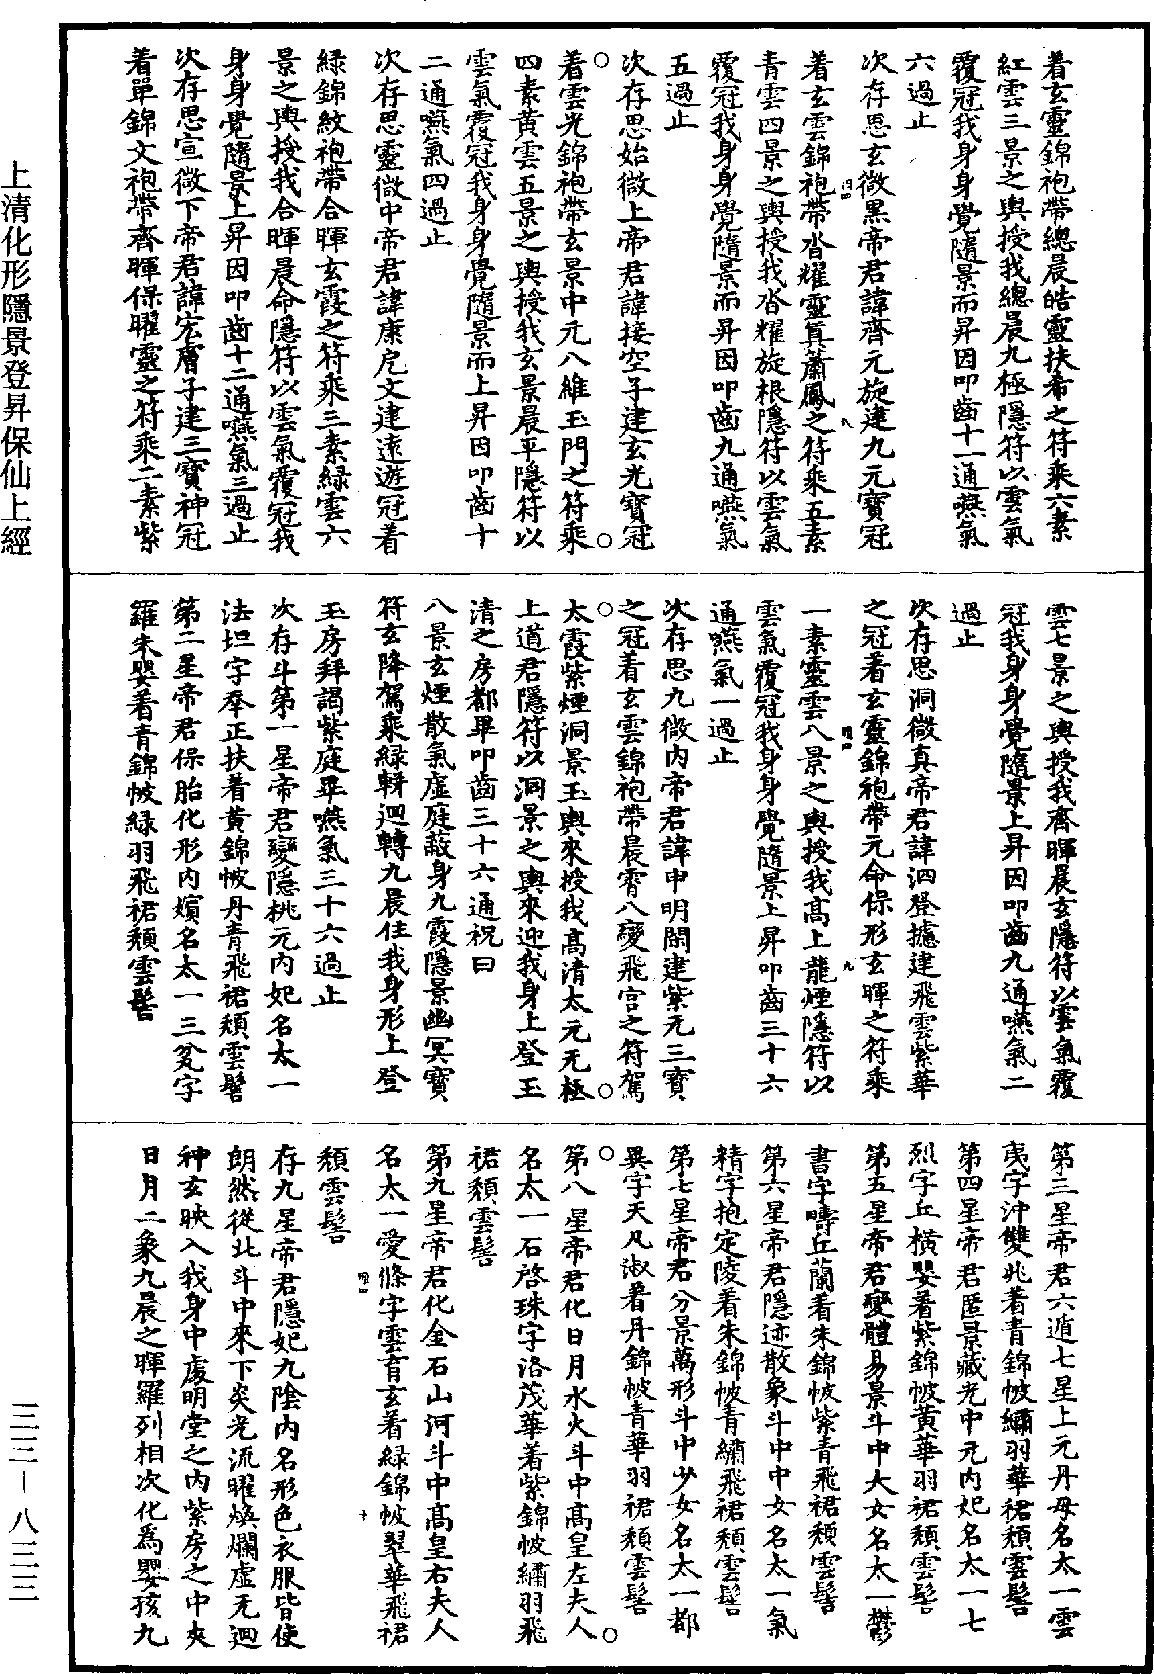 着玄靈錦袍帶總晨皓靈扶希之符乘六素
紅雲三景之輿授我總晨九極隱符以雲氣
覆冠我身身覺隨景而昇因叩齒十一通嚥氣
六過止
次存思玄微黑帝君諱齊元旋建九元寶冠
着玄雲錦袍帶沓耀靈真蕭鳳之符乘五素
青雲四景之輿授我沓耀旋根隱符以雲氣
覆冠我身身覺隨景而昇因叩齒九通嚥氣
五過止
次存思始微上帝君諱接空子建玄光寶冠
着雲光錦袍帶玄景中元八維玉門之符乘
四素黃雲五景之輿授我玄景晨平隱符以
雲氣覆冠我身身覺隨景而上昇因叩齒十
二通嚥氣四過止
次存思靈微中帝君諱康㐆文建遠遊冠着
綠錦紋袍帶合暉玄霞之符乘三素綠雲六
景之輿授我合暉晨命隱符以雲氣覆冠我
身身覺隨景上昇因叩齒十二通嚥氣三過止
次存思宣微下帝君諱宏膚子建三寶神冠
着單錦文袍帶齊暉保曜靈之符乘二素紫
雲七景之輿授我齊暉晨玄隱符以雲氣覆
冠我身身覺隨景上昇因叩齒九通嚥氣二
過止
次存思洞微真帝君諱泗登攄建飛雲紫華
之冠着玄靈錦袍帶元命保形玄暉之符乘
一素靈雲八景之輿授我高上龍煙隱符以
雲氣覆冠我身身覺隨景上昇叩齒三十六
通嚥氣一過止
次存思九微內帝君諱申明閑建紫元三寶
之冠着玄雲錦袍帶晨霄八變飛宮之符駕
太霞紫煙洞景玉輿來授我高清太元无極
上道君隱符以洞景之輿來迎我身上登玉
清之房都畢叩齒三十六通祝曰
八景玄煙散氣虛庭蔽身九霞隱景幽冥寶
符玄降駕乘綠軿迴轉九晨住我身形上登
玉房拜謁紫庭畢嚥氣三十六過止
次存斗第一星帝君變隱桃元內妃名太一
法坦字奉正扶着黃錦帔丹青飛裙頹雲髻
第二星帝君保胎化形內嬪名太一三㚇字
羅朱嬰着青錦帔綠羽飛裙頹雲髻
第三星帝君六遁七星上元丹母名太一雲
夷字沖雙兆着青錦帔繡羽華裙頹雲髻
第四星帝君匿景藏光中元內妃名太一七
烈字丘橫嬰着紫錦帔黃華羽裙頹雲髻
第五星帝君變體易景斗中大女名太一鬱
書字疇丘蘭着朱錦帔紫青飛裙頹雲髻
第六星帝君隱迹散象斗中中女名太一氣
精字抱定陵着朱錦帔青繡飛裙頹雲髻
第七星帝君分景萬形斗中少女名太一都
異字天凡淑着丹錦帔青華羽裙頹雲髻
第八星帝君化日月水火斗中高皇左夫人
名太一石啓珠字洛茂華着紫錦帔繡羽飛
裙頹雲髻
第九星帝君化金石山河斗中高皇右夫人
名太一愛條字雲育玄着綠錦帔翠華飛裙
頹雲髻
存九星帝君隱妃九陰內名形色衣服皆使
朗然從北斗中來下炎光流曜煥爛虛无迴
神玄映入我身中處明堂之內紫房之中夾
日月二象九晨之暉羅列相次化爲嬰孩九
上清化形隱景登昇保仙上經
三三－八三三